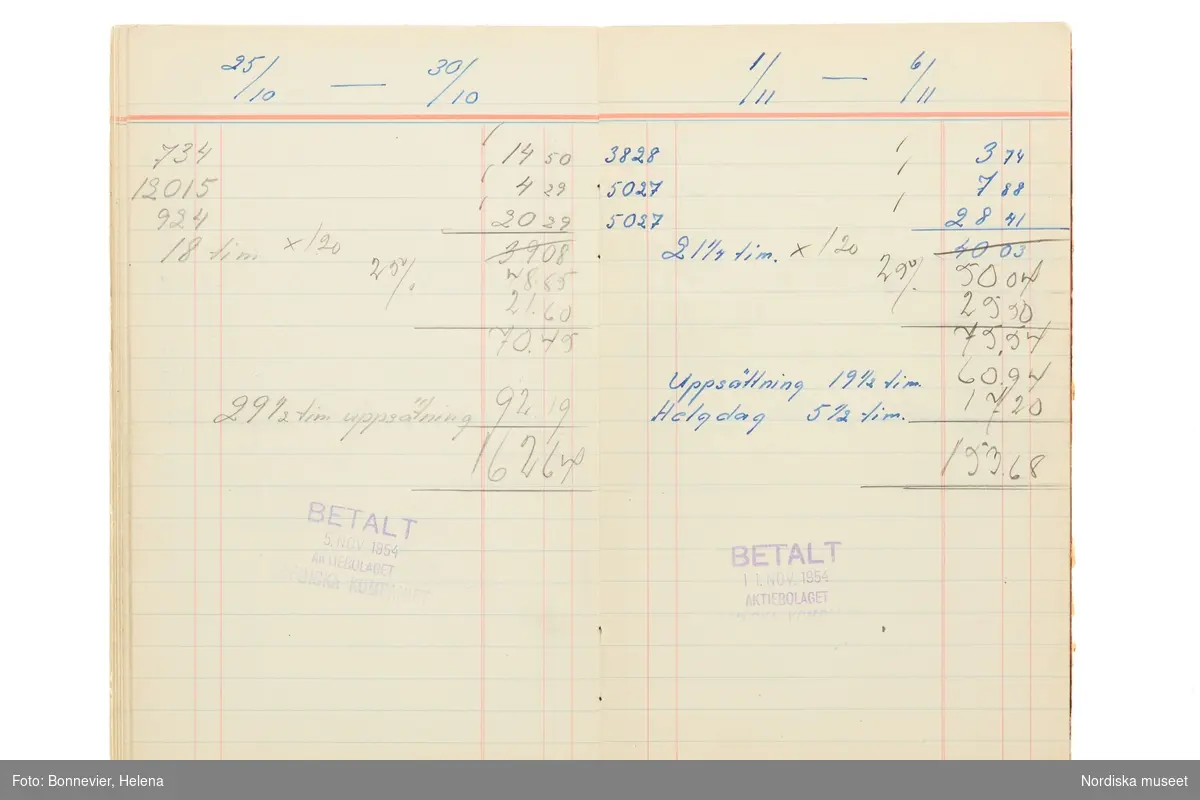 25/10 — 30/10
734 14 50
12015 4 29
924 20 29
18 tim. x 1 20 39 08
25% 48.85
21.60
70.45
29 1/2 tim uppsätning 92 19
162 64
BETALT
5. NOV. 1954
AKTIEBOLAGET
1/11 — 6/11
3828 3 74
5027 7 88
5027 28 41
21 1/4 tim. x 1 20 40 03
25% 50 04
25 50
75.54
Uppsättning 19 1/2 tim. 60.94
Helgdag 5 1/2 tim. 17 20
153.68
BETALT
11. NOV. 1954
AKTIEBOLAGET
Foto: Bonnevier, Helena
Nordiska museet